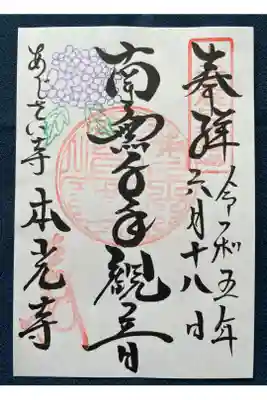 奉拝
令和五年
六月十八日
南無千手観音
あじさい寺 本光寺